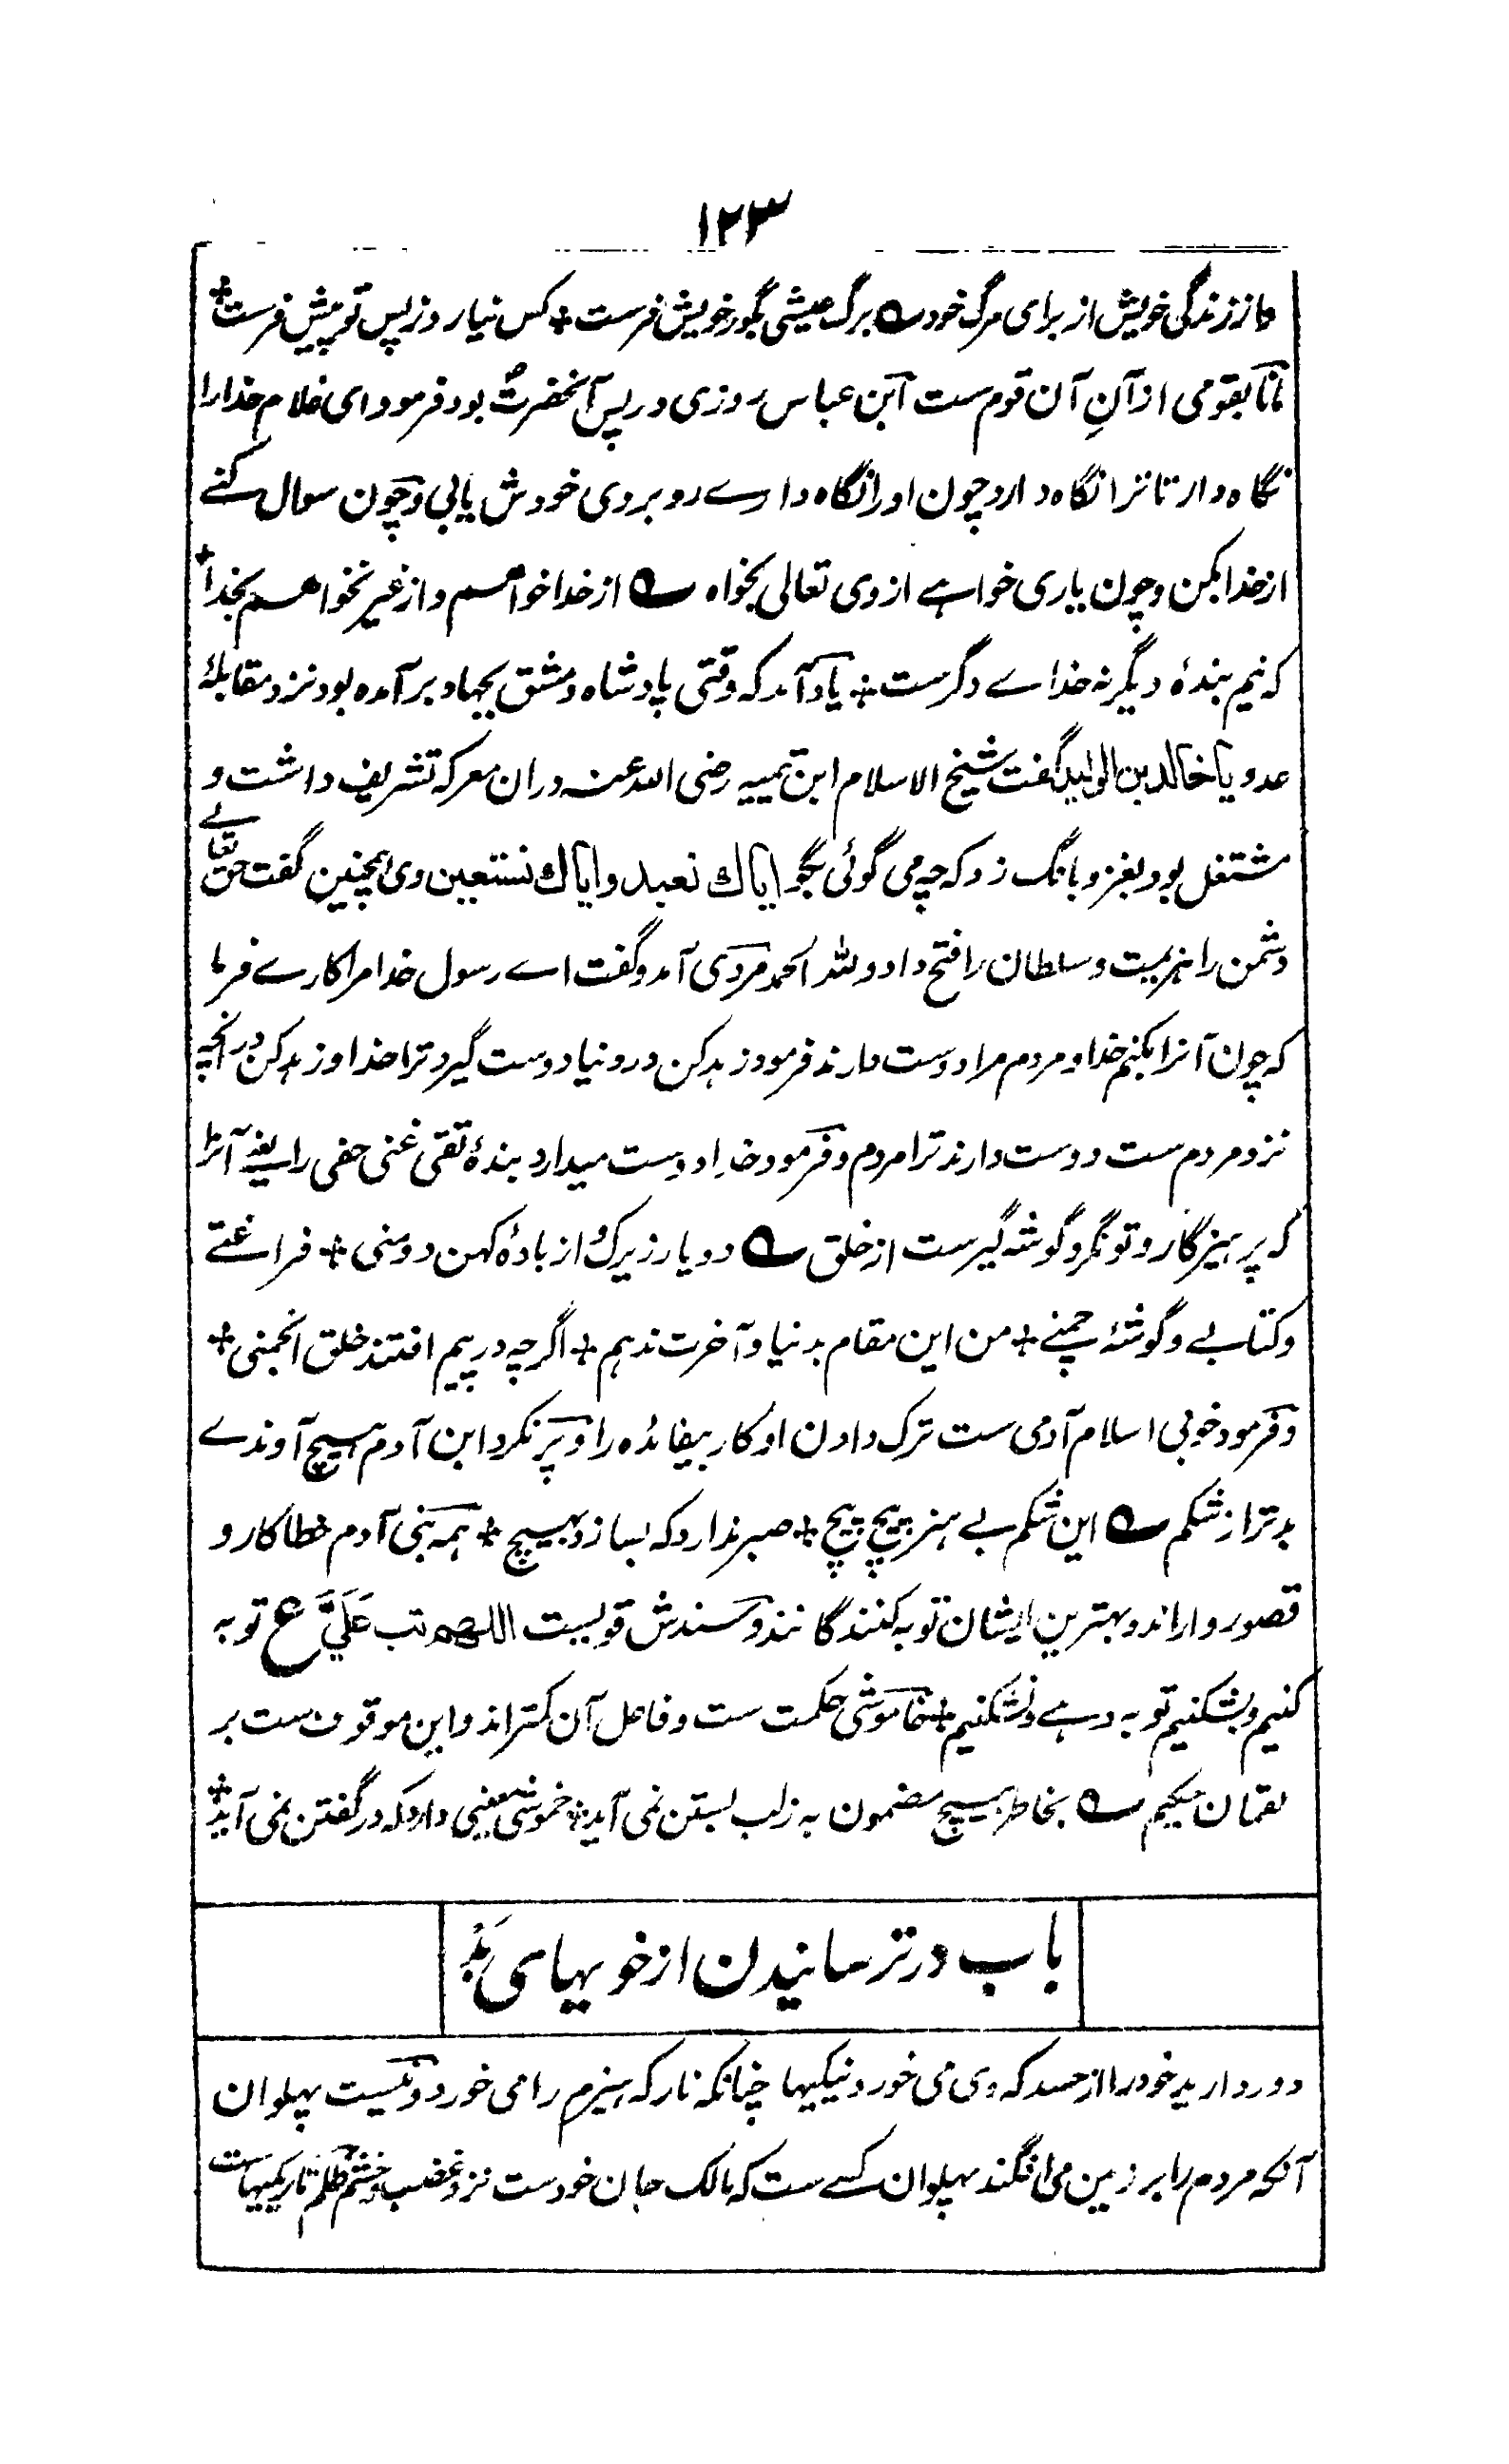 ۱۲۳
و از زندگی خویش از برای مرگ خود ؎ برگ عیشی بگور خویش فرست + کس نیارد ز پس تو پیش فرست +
مانا بقومی از آنِ آن قوم ست ابن عباس روزی در پس آنحضرتؐ بود فرمود ای غلام خدا را
نگاه دار تا ترا نگاه دارد چون او را نگاه دارے روبروی خودش یابی و چون سوال کنے
از خدا بکن و چون یاری خواہے از وی تعالی بخواه ؎ از خدا خواهم و از غیر نخواهم بخدا +
که نیم بندهٔ دیگر نه خداے دگرست + یاد آمد که وقتی پادشاه دمشق بجهاد بر آمده بود نزد مقابلهٔ
عدو یا خالد بن الولید گفت شیخ الاسلام ابن تیمیه رضی الله عنه دران معرکه تشریف داشت و
مشتغل بود بغزو بانگ زد که چه می گوئی بگو ایاك نعبد وایاك نستعین وی همچنین گفت حق تعالے
دشمن را هزیمت و سلطان را فتح داد و لله الحمد مردی آمد و گفت اے رسول خدا مرا کارے فرما
که چون آنرا بکنم خدا و مردم مرا دوست دارند فرمود زهد کن در دنیا دوست گیرد ترا خدا و زهد کن در آنچه
نزد مردم ست دوست دارند ترا مردم و فرمود خدا دوست میدارد بندهٔ تقی غنی خفی را یعنے آنرا
که پرهیزگار و تونگر و گوشه گیرست از خلق ؎ دو یار زیرک و از بادهٔ کهن دومنی + فراغتے
و کتابے و گوشهٔ چمنے + من این مقام بدنیا و آخرت ندهم + اگرچه در پیم افتند خلق انجمنی +
و فرمود خوبی اسلام آدمی ست ترک دادن او کار بیفائده را و پر نکرد ابن آدم هیچ آوندے
بدتر از شکم ؎ این شکم بے هنر پیچ پیچ + صبر ندارد که بسازد بهیچ + همه بنی آدم خطا کار و
قصور وار اند و بهترین ایشان توبه کنندگانند و سندش قویست اللهم تب عَلَيَّ ع توبه
کنیم و بشکنیم توبه دہے و نشکنیم + خاموشی حکمت ست و فاعل آن کمتر اند و این موقوف ست بر
لقمان حکیم ؎ بخاطر هیچ مضمون به ز لب بستن نمی آید + خموشی معنیی دارد که در گفتن نمی آید +
باب در ترسانیدن از خویهای بَد
دور دارید خود را از حسد که وی می خورد نیکیها چنانکه نار که هیزم را می خورد و نیست پهلوان
آنکه مردم را بر زمین می افگند پهلوان کسے ست که مالک جان خودست نزد غضب و خشم ظلم تاریکیهاست